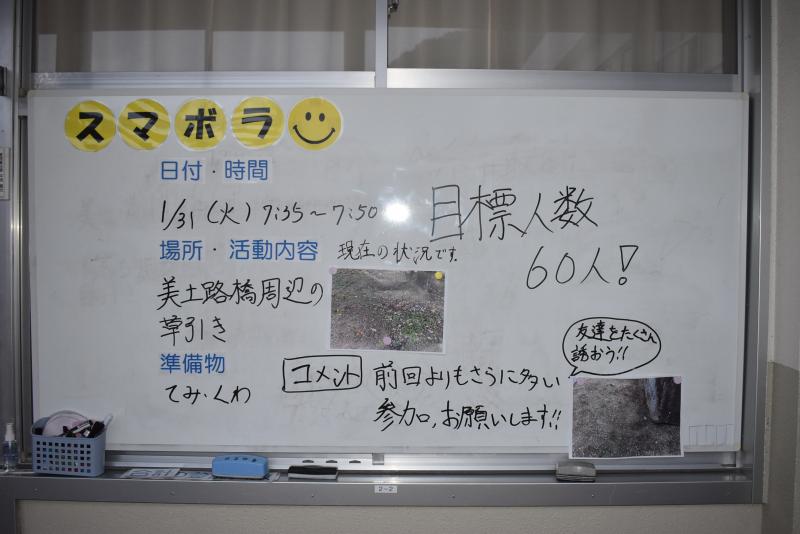 スマボラ
日付・時間
1/31(火)7:35～7:50
目標人数
60人!
場所・活動内容
現在の状況です。
美土路橋周辺の
草引き
準備物
てみ・くわ
コメント
前回よりもさらに多い
参加、お願いします!!
友達をたくさん
誘おう!!
2-2